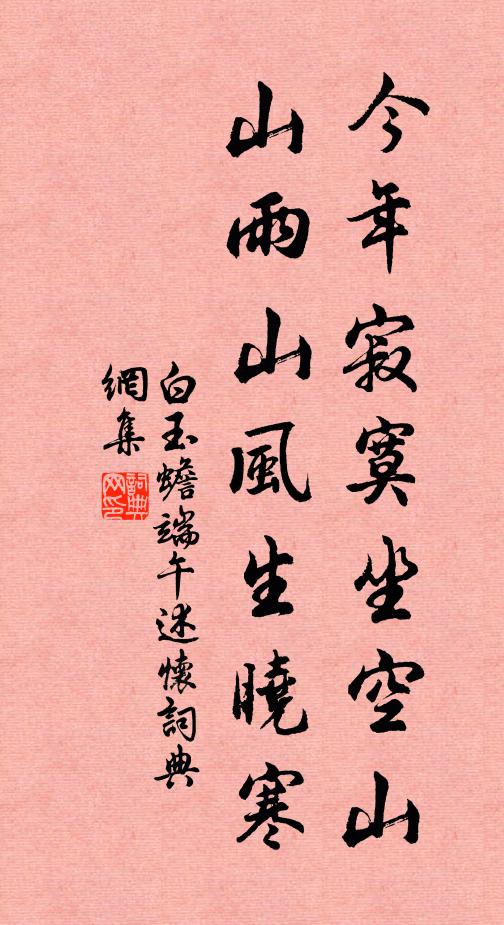 今年寂寞坐空山
山雨山風生曉寒
白玉蟾端午述懷詞典
網集
詞典网印